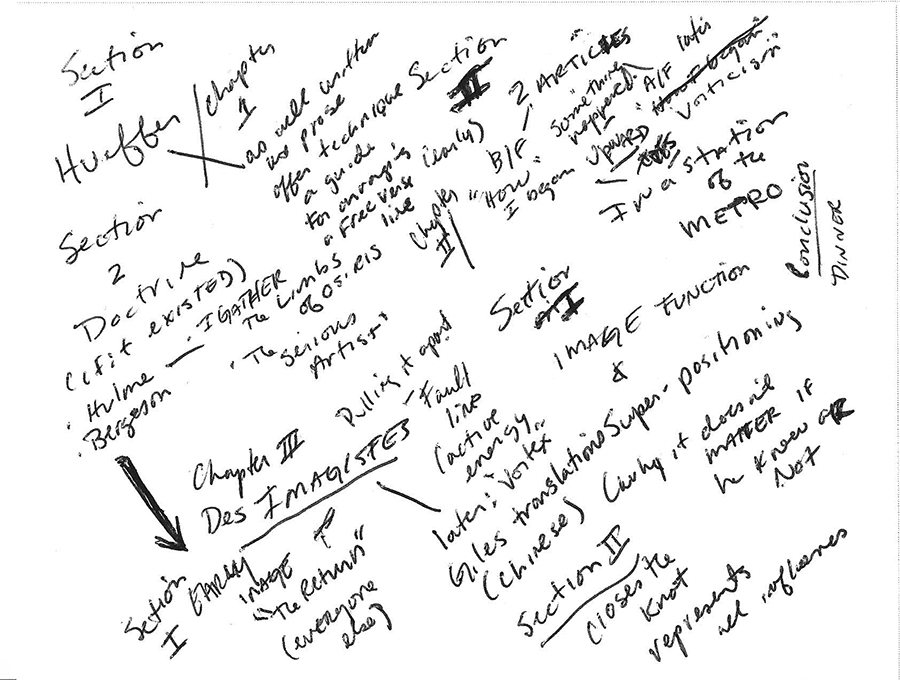 Section
I
Hueffer
Chapter
1
as well written
as prose
offer technique
a guide
for arranging
a free verse
line
Section
2
Doctrine
(if it existed)
· Hulme
· Bergson
· I GATHER
The Limbs
of OSIRIS
· "The
Serious
Artist"
Section
II
(early)
Chapter
II
2 ARTICLES
B/F
"HOW
I began
"Something
happened"
A/F later
Vorticism"
UPWARD
In a station
of the
METRO
Conclusion
DINNER
Section
I
IMAGE FUNCTION
&
Super-positioning
Chapter III
Des IMAGISTES
Pulling it apart
- Fault
line
(active
energy
later: "Vortex"
Giles translations
(Chinese)
(why it doesn't
MATTER if
he knew OR
NOT
Section
I
EARLY
IMAGE
"The Return"
(everyone
else)
Section II
Closes the
Knot
represents
all influences